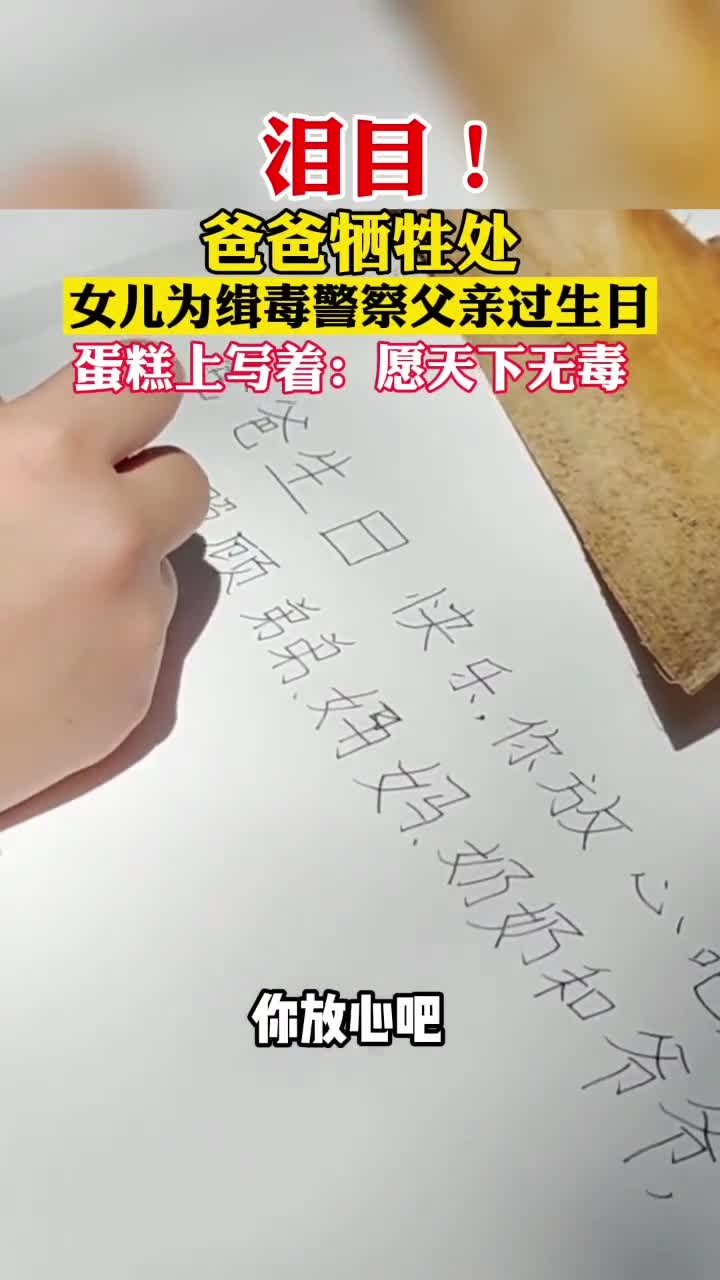 泪目！
爸爸牺牲处
女儿为缉毒警察父亲过生日
蛋糕上写着：愿天下无毒
爸生日快乐，你放心吧
照顾弟弟、妈妈、奶奶和爷爷，
你放心吧